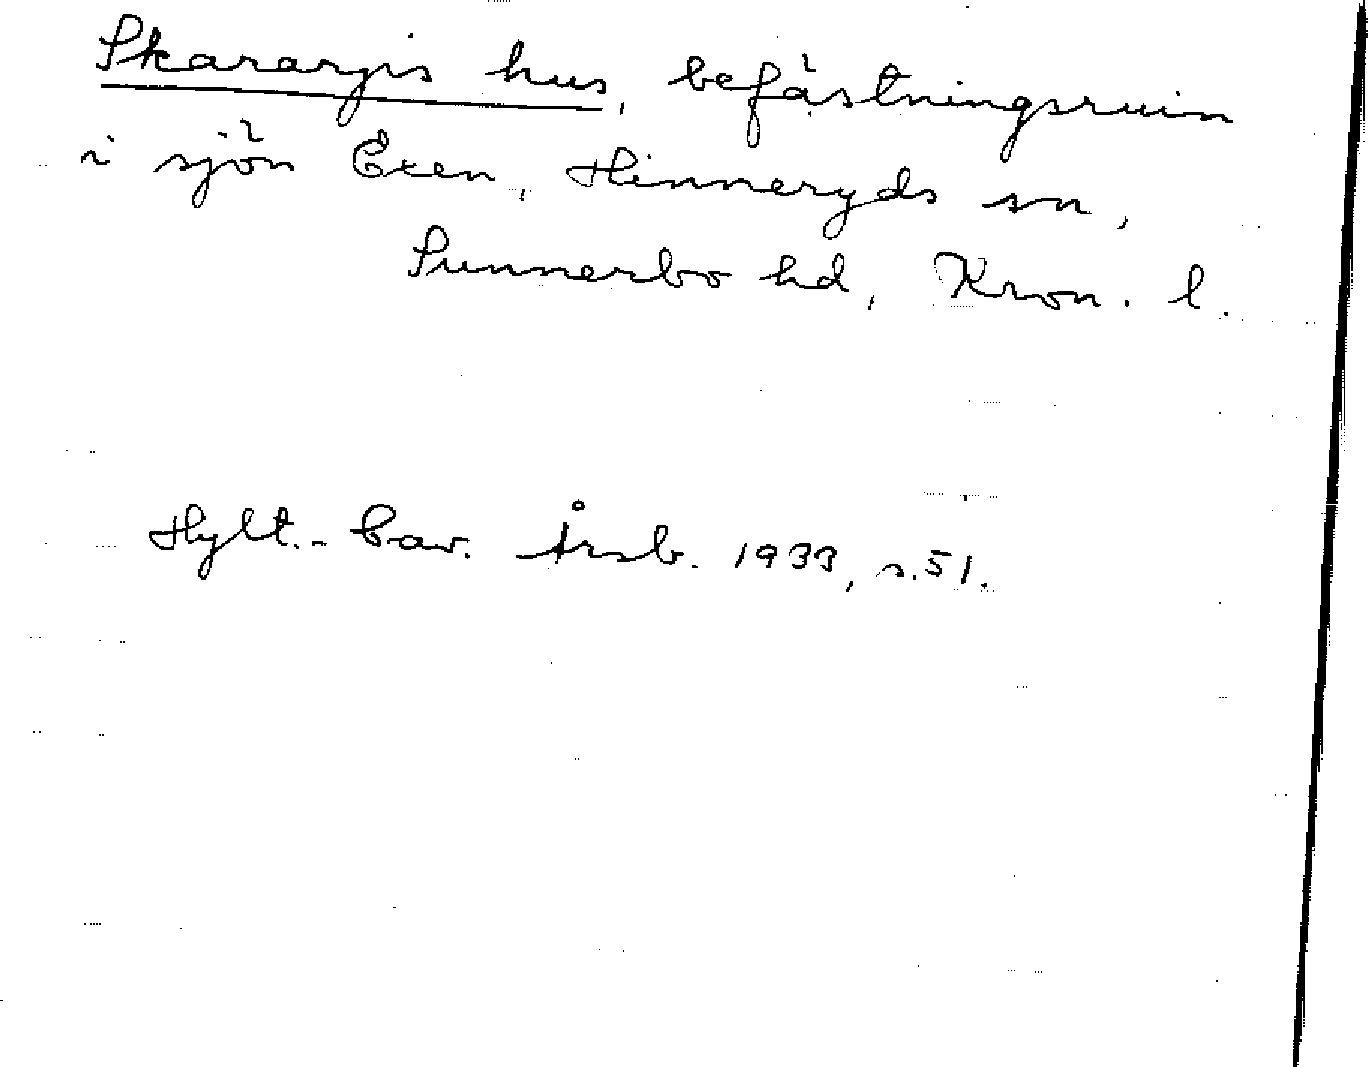 Skarargis hus, befästningsruin
i sjön Exen, Hinneryds sn,
Sunnerbo hd, Kron. l.
Hylt.-Cav. Årsb. 1933, s. 51.